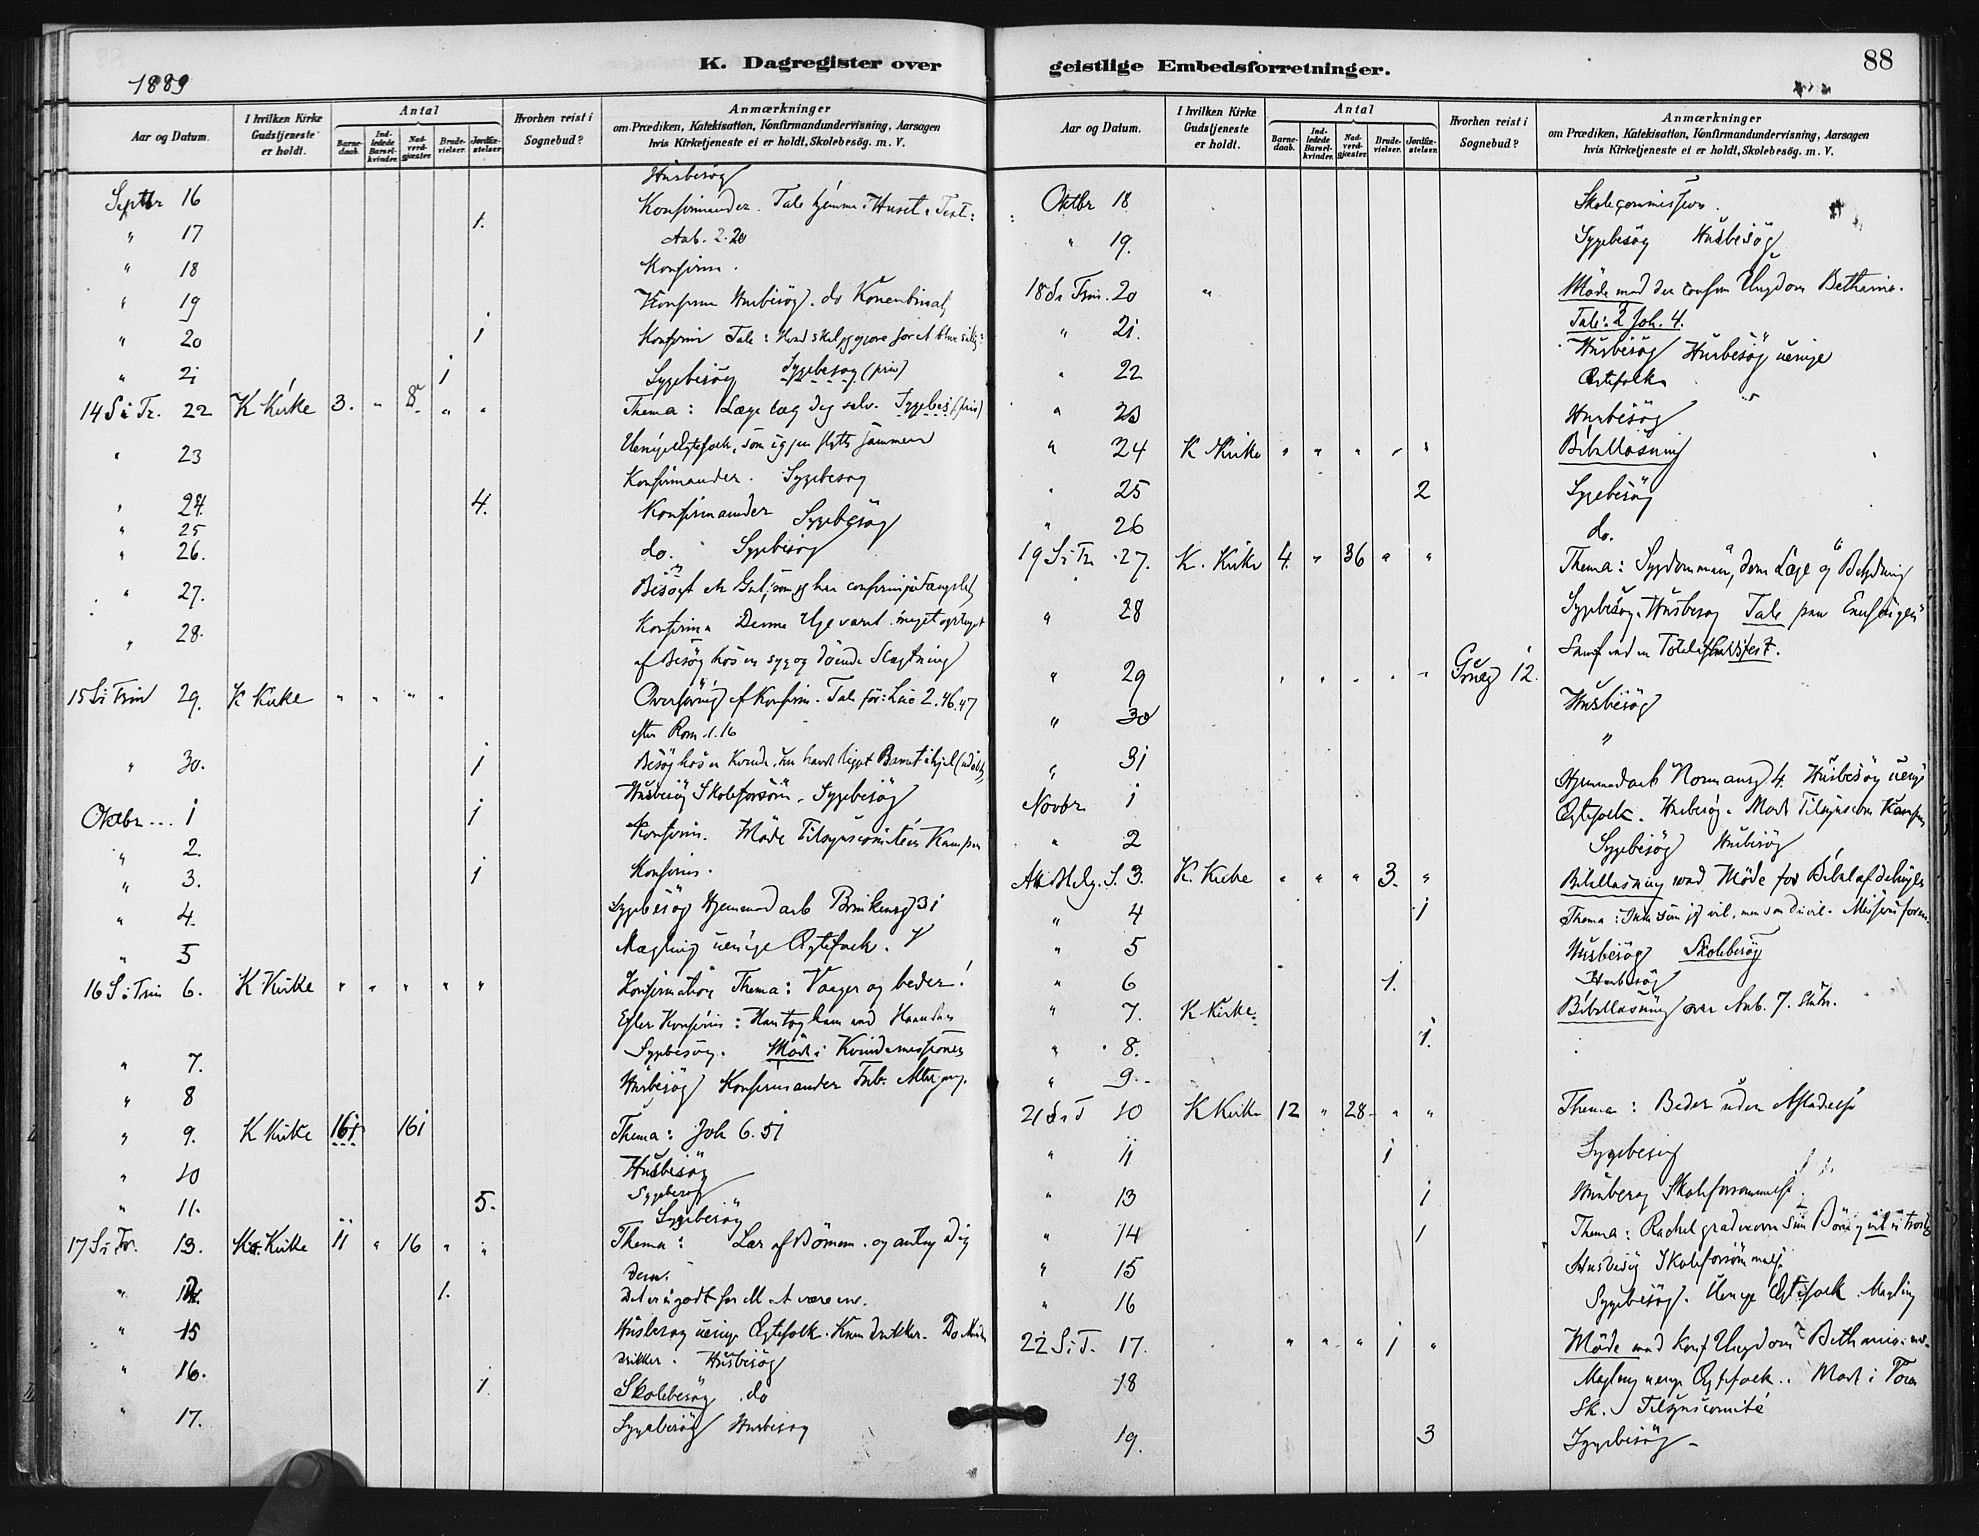 1889
K. Dagregister over
Aar og Datum.
I hvilken Kirke Gudstjeneste er holdt.
Antal
Barne-daab.
Ind-ledede Barsel-kvinder.
Nad-verd-gjæster.
Brude-vielser.
Jordfæ-stelser.
Hvorhen reist i Sognebud?
Anmærkninger
om Prædiken, Katekisation, Konfirmandundervisning, Aarsagen
hvis Kirketjeneste ei er holdt, Skolebesøg. m. V.
Husbesøg
Septbr 16 Konfirmander. Tale hjemme i Huset. Text:
" 17 1. Aab. 2.20
" 18 Konfirm.
" 19 Konfirm Husbesøg. do
" 20 1 Konfirm Tale: Hvad skal jeg gjøre for at blive salig?
" 21 1 Sygebesøg Sygebesøg (priv)
14 S i Tr. 22 K Kirke 3. " 8. " " Thema: Læge læg dig selv. Sygebes (priv)
" 23 Uenige Ægtefolk, som igjen flytte sammen
Konfirmander. Sygebesøg
" 24. 4. Konfirmander Sygebesøg
" 25
" 26. do. Sygebesøg
" 27.
" 28. Konfirm. Denne Uge været meget optaget
af Besøg hos en syg og døende Slægtning
15 S i Trin 29. K Kirke " " " " Overhøring af Konfirm. Tale før: Luc 2.46.47
efter Rom. 1.16
" 30. 1 Besøg hos en Kvinde,
Husbesøg Skoleforsøm. Sygebesøg
Oktbr ... 1 1
" 2. Konfirm. Møde Tilsynscomiteen Kampen
" 3. 1 Konfirm.
" 4. Sygebesøg Hjemmed arb 31
" 5 Mægling uenige Ægtefolk.
16 S i Trin 6. K Kirke " " " " " Konfirmation Thema: Vaager og beder!
Efter Konfirm: Han tog ham ved Haanden
" 7. Sygebesøg. Møde i Kvindemissionen
" 8 Husbesøg Konfirmander
" 9. K Kirke 161 161 Thema: Joh 6.51
" 10 Husbesøg
Sygebesøg
" 11. 5. Sygebesøg
17 S i Tr. 13. K. Kirke 11 " 16 " " Thema: Lær af Børnene og antag dig
dem.
" 14. 1. Det er ei godt for M. at være ene.
" 15 Husbesøg uenige Ægtefolk. Kven drikker. Do Manden
" 16. drikker. Husbesøg
1. Skolebesøg do
" 17. Sygebesøg Husbesøg
geistlige Embedsforretninger.
88
Aar og Datum.
I hvilken Kirke Gudstjeneste er holdt.
Antal
Barne-daab.
Ind-ledede Barsel-kvinder.
Nad-verd-gjæster.
Brude-vielser.
Jordfæ-stelser.
Hvorhen reist i Sognebud?
Anmærkninger
om Prædiken, Katekisation, Konfirmandundervisning, Aarsagen
hvis Kirketjeneste ei er holdt, Skolebesøg. m. V.
Oktbr 18 Skolecommission.
" 19. Sygebesøg Husbesøg
18 S i Trin. 20 " Møde med den confirm Ungdom Bethania.
Tale: 2 Joh. 4.
" 21.
" 22 Husbesøg Husbesøg uenige
Ægtefolk
" 23 Husbesøg
" 24 K Kirke " " " " " Bibellæsning
" 25 2 Sygebesøg
" 26 do.
19 S i Tr. 27. K. Kirke 4. " 36 " " Thema: Sygdommen, dens Læge og Betydning
" 28 Sygebesøg. Husbesøg Tale paa
Samf ved en
" 29 " " " " " Grneg 12.
" 30 Husbesøg
"
" 31 Hjemmed arb Normansg 4. Husbesøg uenige
Novbr 1 Ægtefolk. Husbesøg. Møde Tilsynscom Kampen
" 2 Sygebesøg Husbesøg
Alle Helg. S. 3. K. Kirke " " " 3. " Bibellæsning ved Møde for Bibelafdelingen
" 4 1 Thema: Ikke som jeg vil, men som du vil. Missionsforen.
" 5 Husbesøg Skolebesøg
" 6 1. Husbesøg
" 7. K Kirke Bibellæsning over Aab. 7.
" 8. 1.
" 9.
21 S i T 10 K Kirke 12 " 28 " " Thema: Beder uden Afladelse
" 11 1 Sygebesøg
" 13 1 Husbesøg Skoleforsømmelse
" 14 1 Thema: Rachel græder over sine Børn og vil ei trøstes
" 15 Husbesøg Skoleforsømmelse
" 16 Sygebesøg. Uenige Ægtefolk Mægling
22 S i T. 17. " " " 1 " Møde med Konf Ungdom Bethania
18 Mægling uenige Ægtefolk. Møde i Foren
Sk. Tilsynscomité
19. 3 Sygebesøg